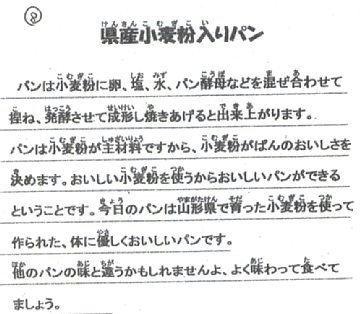 ⑧
県産小麦粉入りパン
パンは小麦粉に卵、塩、水、パン酵母などを混ぜ合わせて
捏ね、発酵させて成形し焼きあげると出来上がります。
パンは小麦粉が主材料ですから、小麦粉がぱんのおいしさを
決めます。おいしい小麦粉を使うからおいしいパンができる
ということです。今日のパンは山形県で育った小麦粉を使って
作られた、体に優しくおいしいパンです。
他のパンの味と違うかもしれませんよ、よく味わって食べて
ましょう。